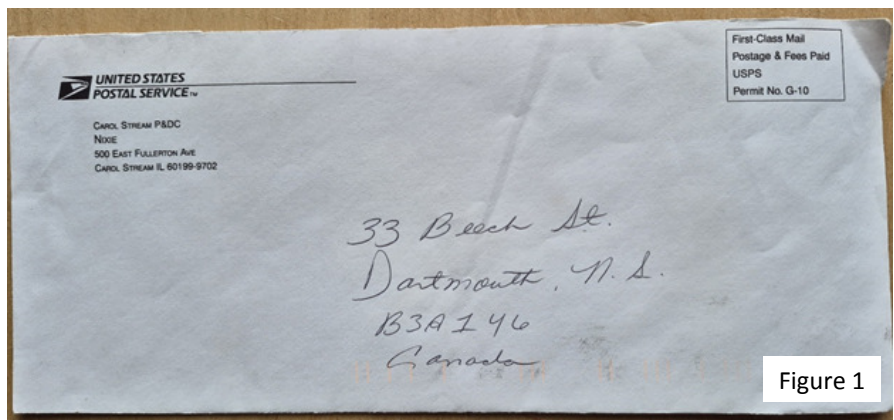 UNITED STATES
POSTAL SERVICE™
CAROL STREAM P&DC
NIXIE
500 EAST FULLERTON AVE
CAROL STREAM IL 60199-9702
First-Class Mail
Postage & Fees Paid
USPS
Permit No. G-10
33 Beech St.
Dartmouth, N.S.
B3A 1Y6
Canada
Figure 1